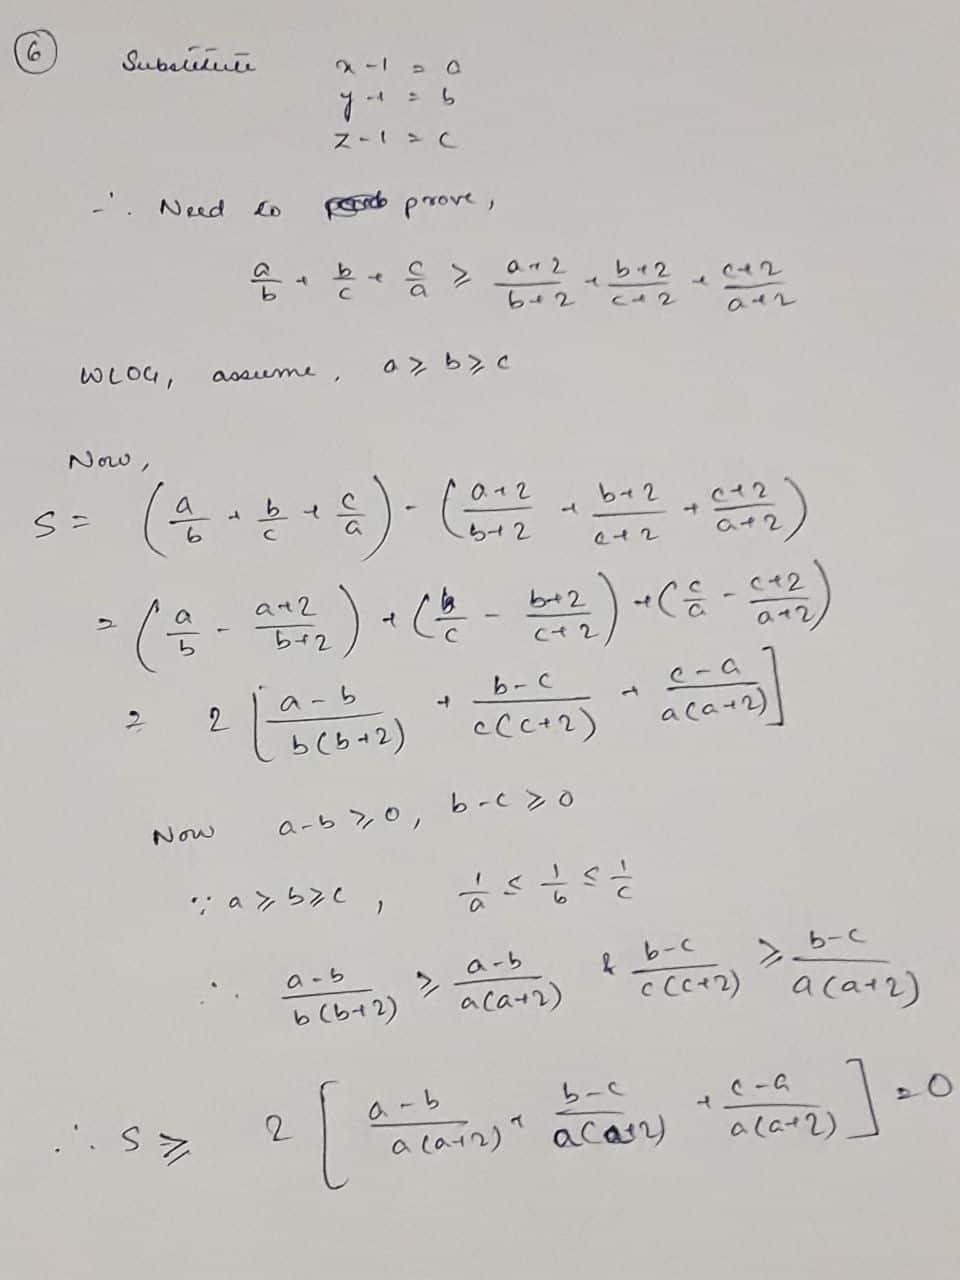 6 Substitute x-1 = a
y-1 = b
z-1 = c
∴ Need to prove,
a/b + b/c + c/a ≥ (a+2)/(b+2) + (b+2)/(c+2) + (c+2)/(a+2)
WLOG, assume, a ≥ b ≥ c
Now,
S = (a/b + b/c + c/a) - ((a+2)/(b+2) + (b+2)/(c+2) + (c+2)/(a+2))
= (a/b - (a+2)/(b+2)) + (b/c - (b+2)/(c+2)) + (c/a - (c+2)/(a+2))
= 2 [(a-b)/(b(b+2)) + (b-c)/(c(c+2)) + (c-a)/(a(a+2))]
Now a-b ≥ 0, b-c ≥ 0
∵ a ≥ b ≥ c, 1/a ≤ 1/b ≤ 1/c
∴ (a-b)/(b(b+2)) ≥ (a-b)/(a(a+2)) & (b-c)/(c(c+2)) ≥ (b-c)/(a(a+2))
∴ S ≥ 2 [(a-b)/(a(a+2)) + (b-c)/(a(a+2)) + (c-a)/(a(a+2))] = 0